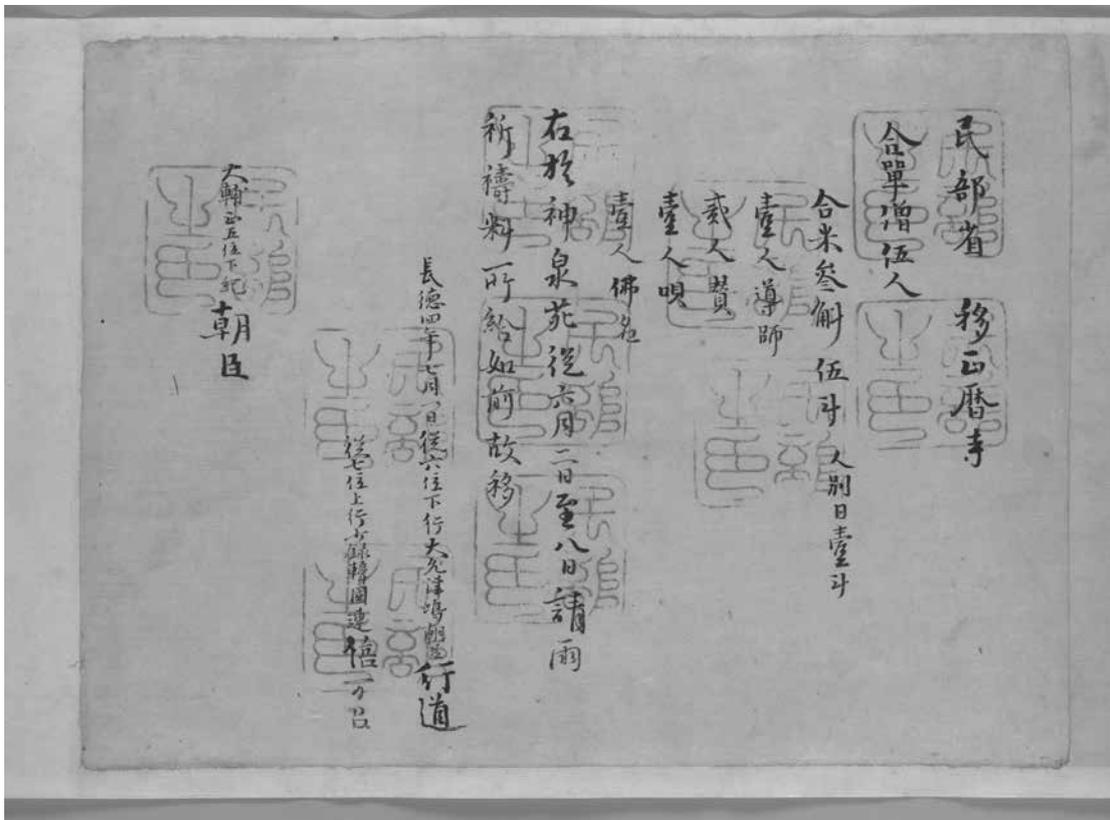 民部省　移正暦寺
合單僧伍人
合米叄斛伍斗　人別日壹斗
壹人導師
貳人賛
壹人唄
壹人佛名
右於神泉苑從六月二日至八日請雨
祈禱料所給如前故移
長德四年七月一日從六位下行大允津嶋朝臣行道
從七位上行少録連
大輔正五位下紀朝臣